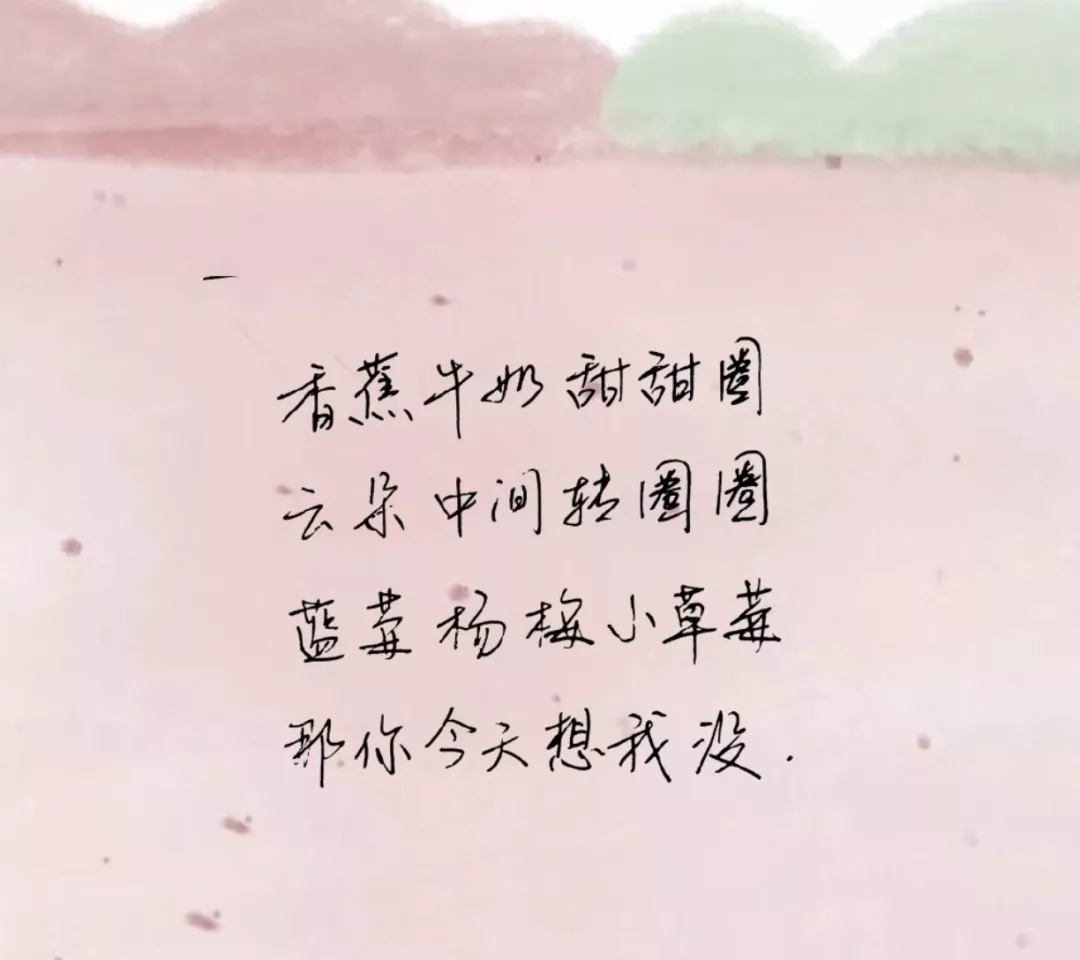 香蕉牛奶甜甜圈
云朵中间转圈圈
蓝莓杨梅小草莓
那你今天想我没.